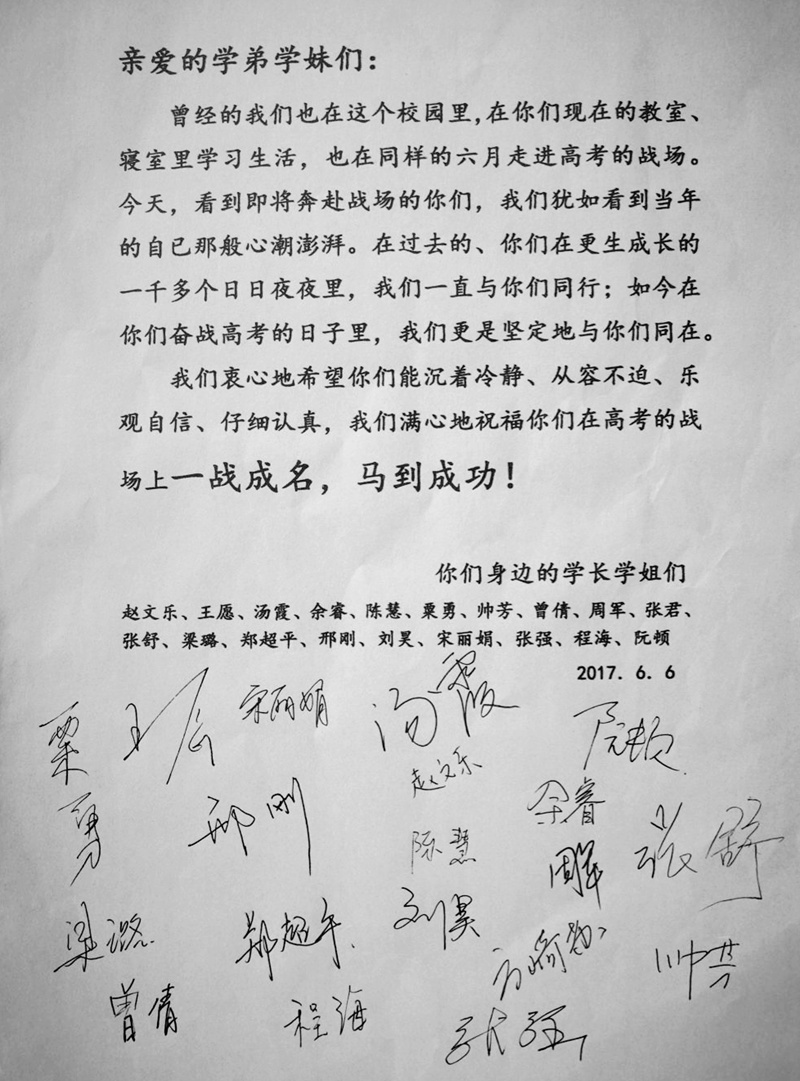 亲爱的学弟学妹们：
曾经的我们也在这个校园里，在你们现在的教室、
寝室里学习生活，也在同样的六月走进高考的战场。
今天，看到即将奔赴战场的你们，我们犹如看到当年
的自已那般心潮澎湃。在过去的、你们在更生成长的
一千多个日日夜夜里，我们一直与你们同行；如今在
你们奋战高考的日子里，我们更是坚定地与你们同在。
我们衷心地希望你们能沉着冷静、从容不迫、乐
观自信、仔细认真，我们满心地祝福你们在高考的战
场上一战成名，马到成功！
你们身边的学长学姐们
赵文乐、王愿、汤霞、余睿、陈慧、粟勇、帅芳、曾倩、周军、张君、
张舒、梁璐、郑超平、邢刚、刘昊、宋丽娟、张强、程海、阮顿
2017.6.6
宋丽娟
汤霞
阮顿
粟勇
王愿
赵文乐
余睿
邢刚
陈慧
周军
张舒
刘昊
梁璐
郑超平
帅芳
曾倩
程海
张强